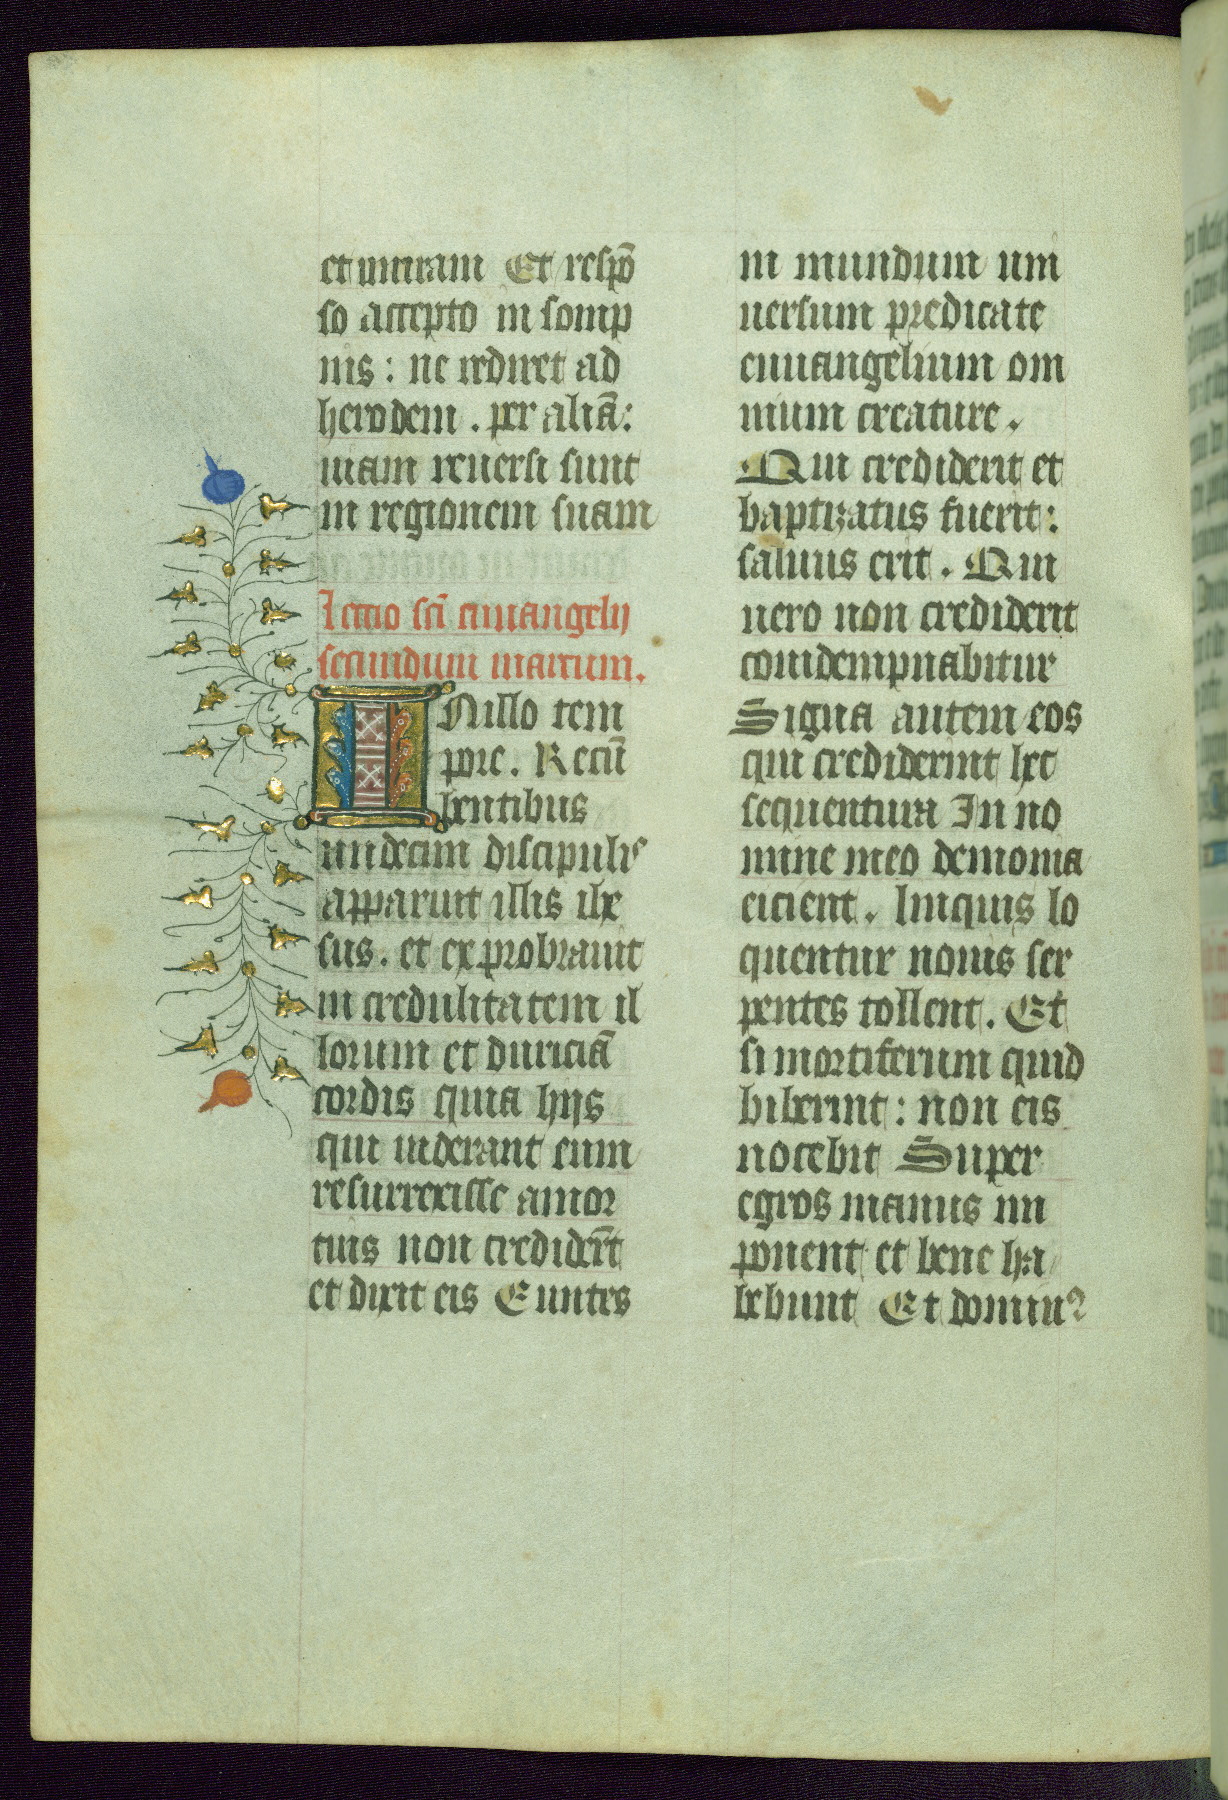 et mirram Et respō
so accepto in somp
nis : ne rediret ad
herodem . per aliā :
uiam reuersi sunt
in regionem suam
Lectio scī ewangelij
secundum marcum.
In illo tem
pore. Recū
bentibus
undecim discipulis
apparuit illis ihe
sus. et exprobrauit
in credulitatem il
lorum et duriciā
cordis quia hijs
qui uiderant eum
resurrexisse a mor
tuis non crediderūt
et dixit eis Euntes
in mundum uni
uersum predicate
ewangelium om
nium creature.
Qui crediderit et
baptizatus fuerit :
saluus erit. Qui
uero non crediderit
condempnabitur
Signa autem eos
qui crediderint hec
sequentura In no
mine meo demonia
eicient. linquis lo
quentur nouis ser
pentes tollent. Et
si mortiferum quid
biberint : non eis
nocebit Super
egros manus im
ponent et bene ha
bebunt Et dominꝰ